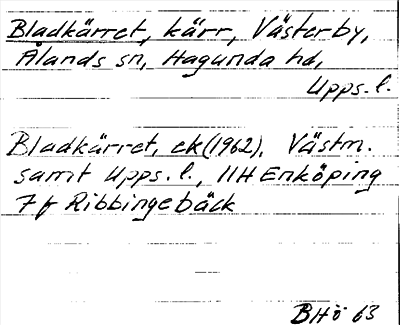 Bladkärret, kärr, Västerby,
Ålands sn, Hagunda hd,
Upps. l.
Bladkärret, ek (1962), Västm.
samt Upps. l., 11H Enköping
7f Ribbingebäck
BHö 63